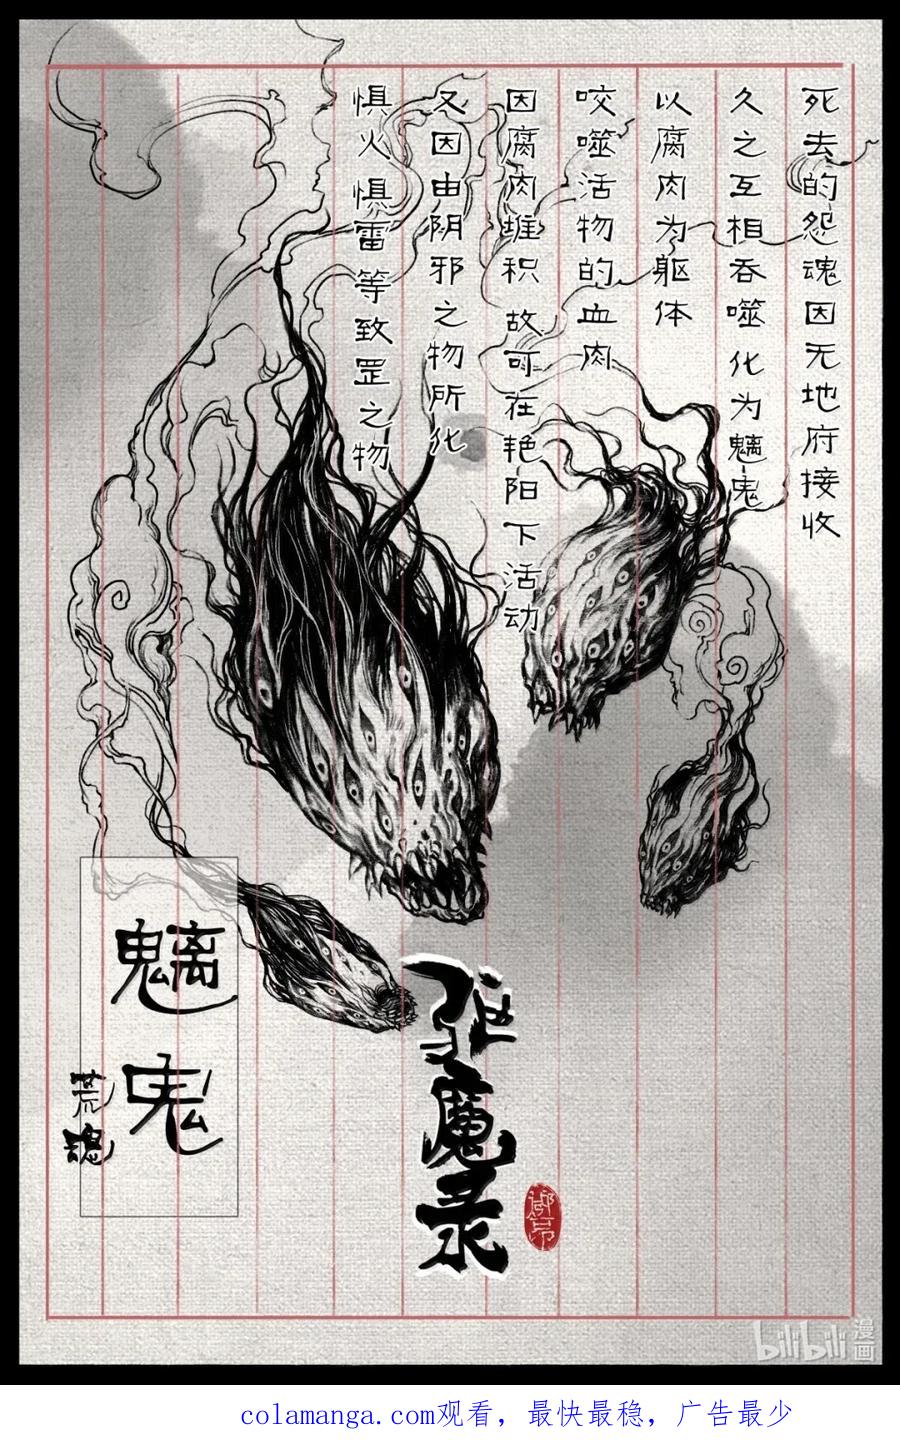 死去的怨魂因无地府接收
久之互相吞噬 化为魑鬼
以腐肉为躯体
咬噬活物的血肉
因腐肉堆积 故可在艳阳下活动
又因由阴邪之物所化
惧火 惧雷等致罡之物
驱魔录
魑鬼
荒魂
bilibili漫画
colamanga.com观看，最快最稳，广告最少